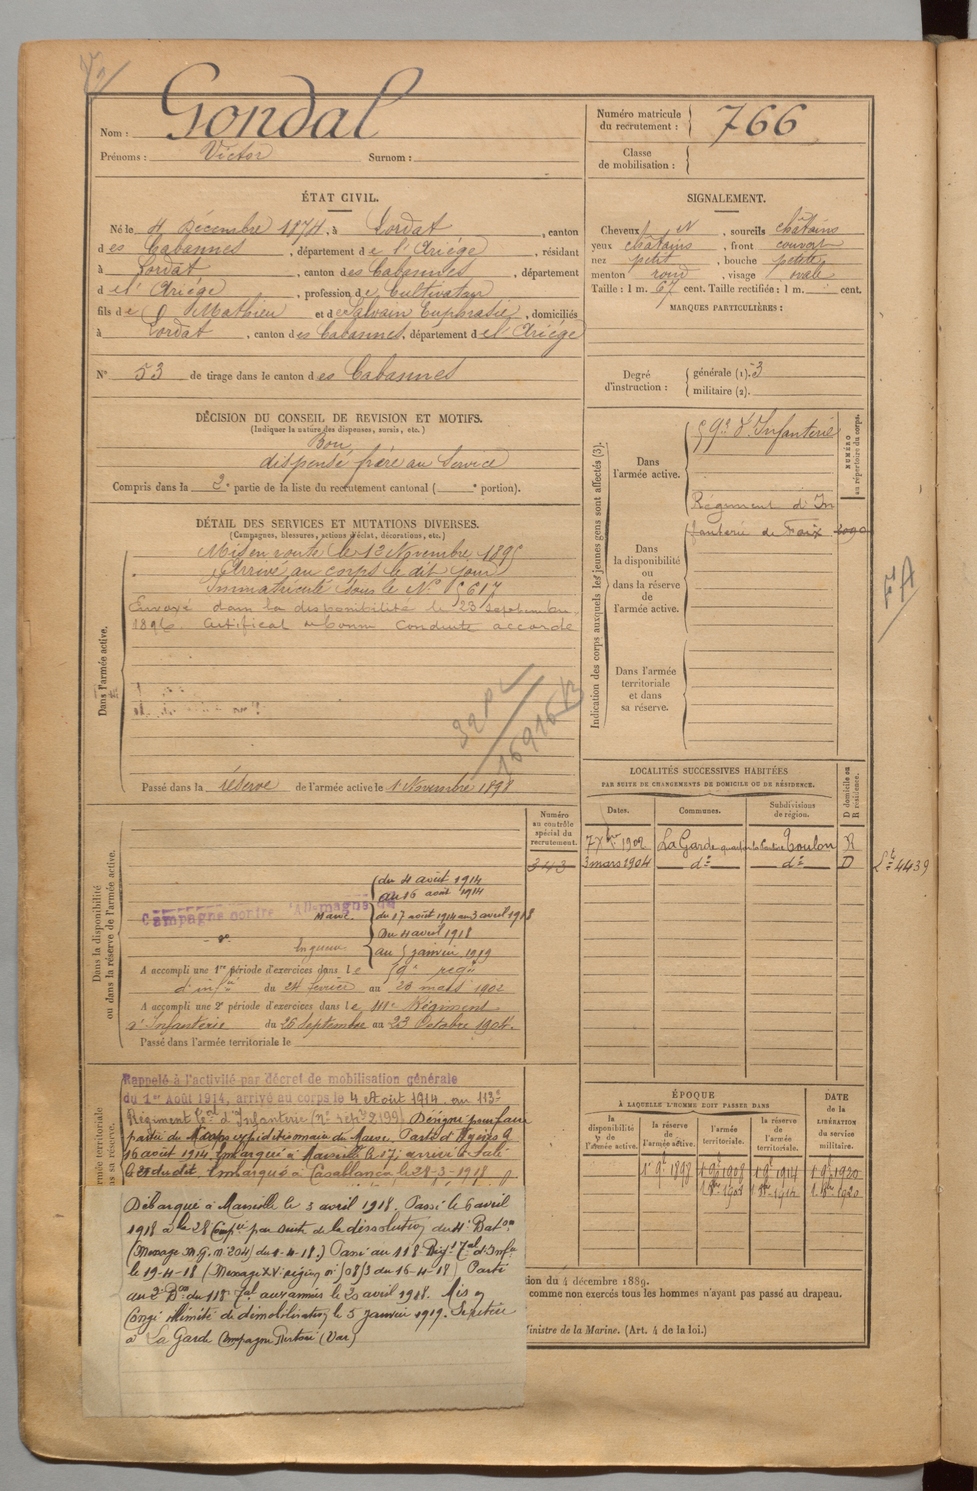 Gondal
Nom :
Prénoms : Victor Surnom :
Numéro matricule du recrutement : 766
Classe de mobilisation :
ÉTAT CIVIL.
Né le 4 Décembre 1874, à Lordat, canton
des Cabannes, département de l'Ariége, résidant
à Lordat, canton des Cabannes, département
de l'Ariége, profession de Cultivateur
fils de Mathieu et de Salvain Euphrasie, domiciliés
à Lordat, canton des Cabannes, département de l'Ariége
N° 53 de tirage dans le canton des Cabannes
SIGNALEMENT.
Cheveux N, sourcils châtains
yeux châtains, front couvert
nez petit, bouche petite
menton rond, visage ovale
Taille : 1 m. 67 cent. Taille rectifiée : 1 m. cent.
MARQUES PARTICULIÈRES :
Degré d'instruction : générale (1). 3
militaire (2).
DÉCISION DU CONSEIL DE REVISION ET MOTIFS.
(Indiquer la nature des dispenses, sursis, etc.)
Bon
dispensé frère au Service
Compris dans la 2e partie de la liste du recrutement cantonal ( e portion).
DÉTAIL DES SERVICES ET MUTATIONS DIVERSES.
(Campagnes, blessures, actions d'éclat, décorations, etc.)
Dans l'armée active.
Mis en route le 13 Novembre 1895
Arrivé au corps le dit jour
Immatriculé sous le N° 5617
Envoyé dans la disponibilité le 23 septembre
1896. Certificat de bonne conduite accordé
32 P
16916 B
Passé dans la réserve de l'armée active le 1 Novembre 1898
Indication des corps auxquels les jeunes gens sont affectés (3).
NUMÉRO au répertoire du corps.
Dans l'armée active.
59e d'Infanterie
Régiment d'In
fanterie de Foix
Dans la disponibilité ou dans la réserve de l'armée active.
Dans l'armée territoriale et dans sa réserve.
LOCALITÉS SUCCESSIVES HABITÉES
PAR SUITE DE CHANGEMENTS DE DOMICILE OU DE RÉSIDENCE.
D domicile ou R résidence.
Dates. Communes. Subdivisions de région.
7 Xbre 1902 La Garde Toulon R
3 mars 1904 do do D
4439
Numéro au contrôle spécial du recrutement.
343
Dans la disponibilité ou dans la réserve de l'armée active.
Campagne contre l'Allemagne
du 4 août 1914
au 16 août 1914
Maroc. du 17 août 1914 au 3 avril 1918
Du 4 avril 1918
au 5 janvier 1919
A accompli une 1re période d'exercices dans le 59e regt
d'infie du 24 fevrier au 23 mars 1902
A accompli une 2e période d'exercices dans le 111e Régiment
d'Infanterie du 26 Septembre au 23 Octobre 1904.
Passé dans l'armée territoriale le
Rappelé à l'activité par décret de mobilisation générale
du 1er Août 1914, arrivé au corps le 4 Août 1914, au 113e
Régiment tal d'Infanterie Désigné pour faire
partie du Corps expéditionnaire du Maroc. Parti d'Hyères le
16 août 1914. Embarqué à Marseille le 17; arrivé à Salé
le 21 du dit. Embarqué à Casablanca le 28-3-1918
Débarqué à Marseille le 3 avril 1918. Passé le 6 avril
1918 à la 28 Compie par suite de la dissolution du 4e Baton
(Message M.G. n° 204) du 1-4-18.) Passé au 118 Regt tal d'Infie
le 19-4-18 (Message XV région du 16-4-18) Parti
au 2e Bon du 118 tal aux armées le 20 avril 1918. Mis en
Congé illimité de démobilisation le 5 janvier 1919. Se retire
à La Garde (Var)
ÉPOQUE
À LAQUELLE L'HOMME DOIT PASSER DANS
la disponibilité de l'armée active. la réserve de l'armée active. l'armée territoriale. la réserve de l'armée territoriale.
DATE de la LIBÉRATION du service militaire.
1er 9bre 1898 1er 9bre 1908 1er 9bre 1914 1er 9bre 1920
tion du 4 décembre 1889.
comme non exercés tous les hommes n'ayant pas passé au drapeau.
Ministre de la Marine. (Art. 4 de la loi.)